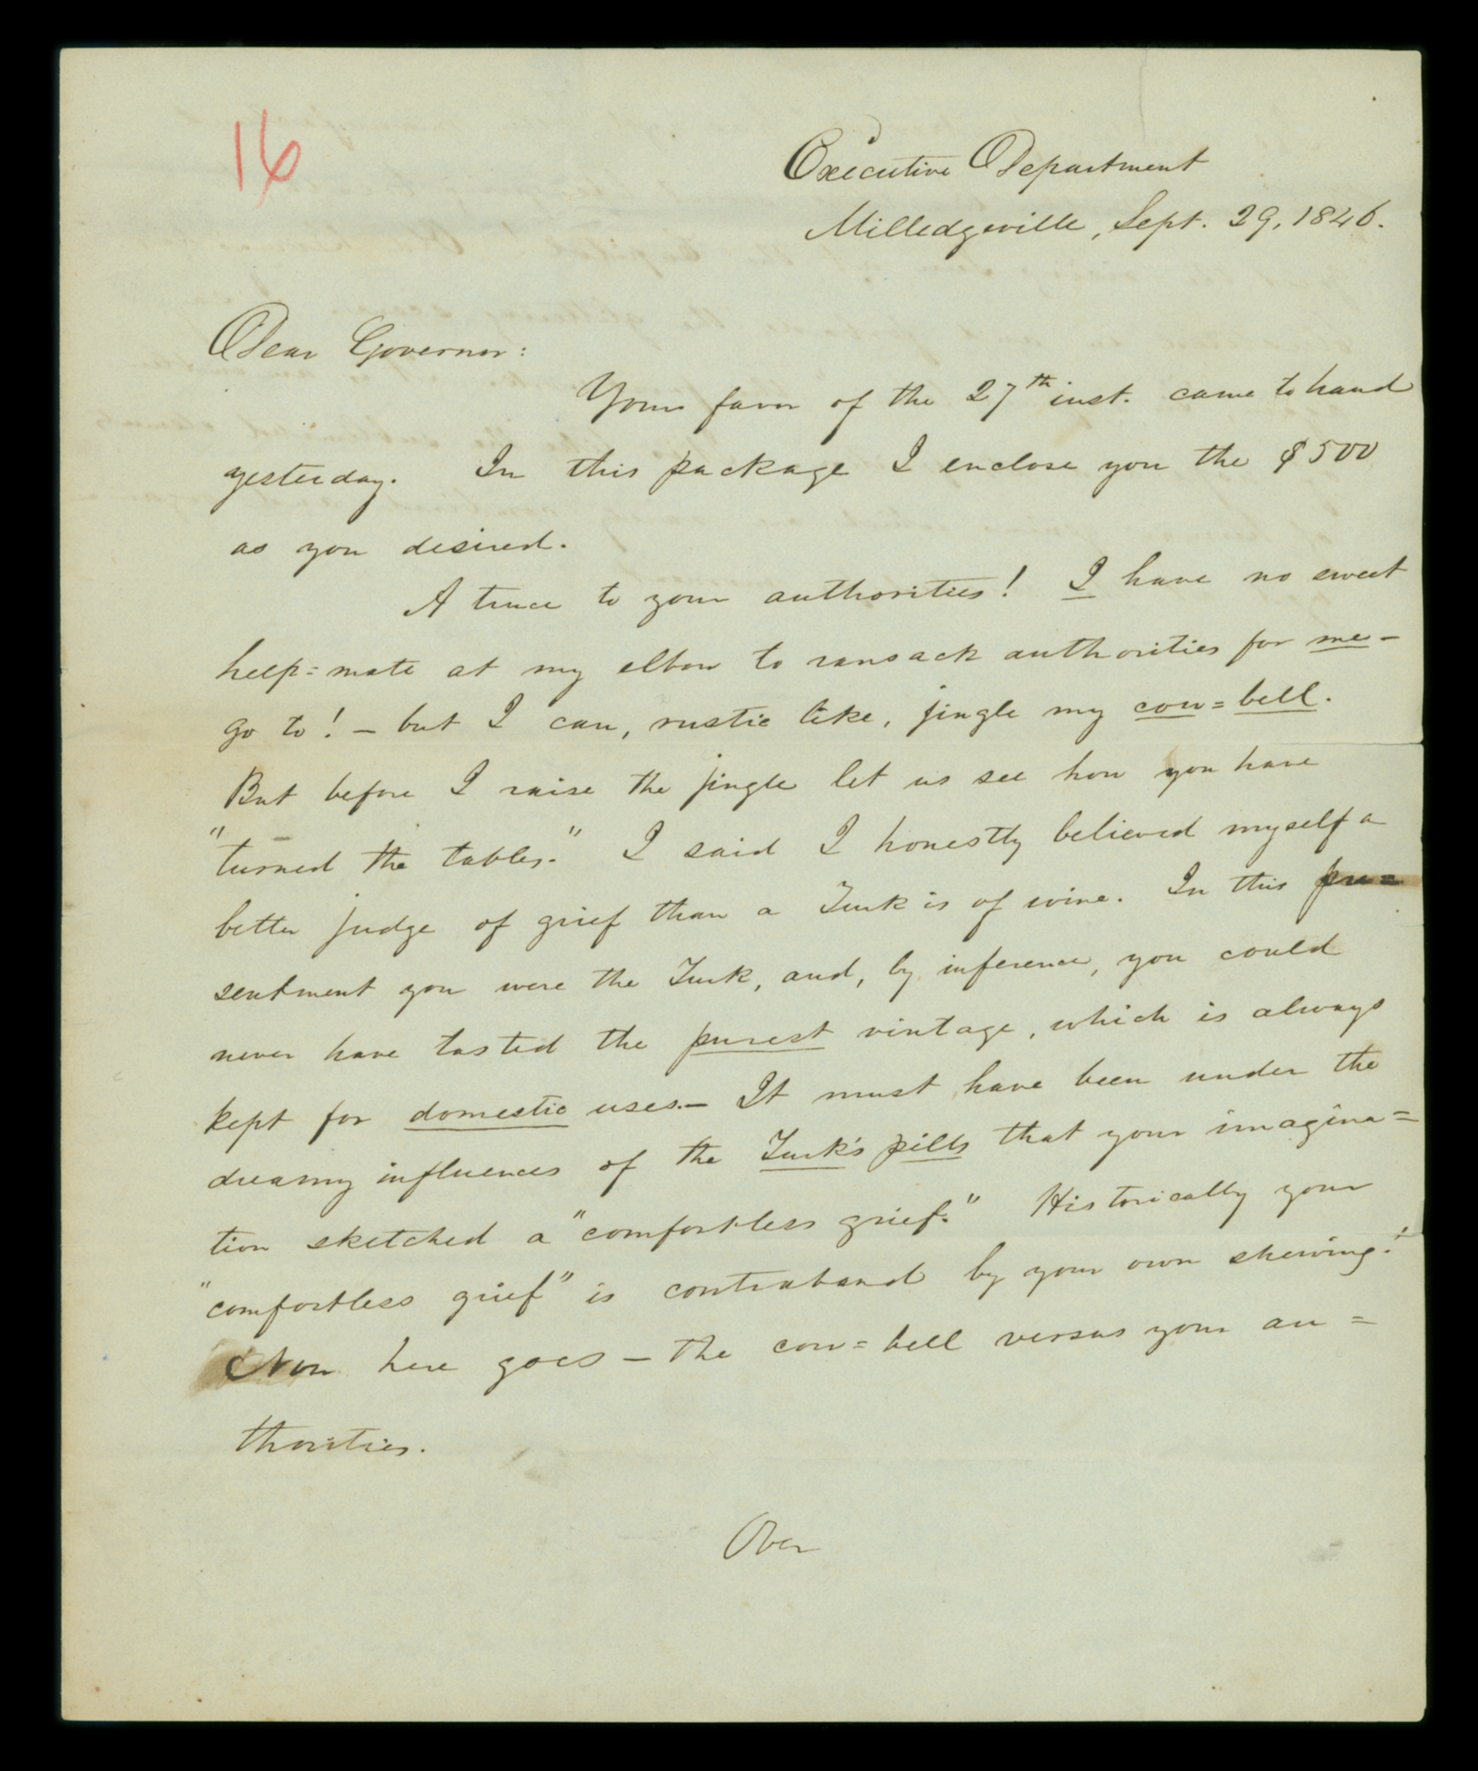 16
Executive Department
Milledgeville, Sept. 29, 1846.
Dear Governor:
Your favor of the 27th inst. came to hand
yesterday. In this package I enclose you the $500
as you desired.
A truce to your authorities! I have no sweet
help=mate at my elbow to ransack authorities for me—
go to! — but I can, rustic like, jingle my cow=bell.
But before I raise the jingle let us see how you have
"turned the tables." I said I honestly believed myself a
better judge of grief than a Turk is of wine. In this pre=
sentment you were the Turk, and, by inference, you could
never have tasted the purest vintage, which is always
kept for domestic uses.— It must have been under the
dreamy influences of the Turk's pills that your imagina=
tion sketched a "comfortless grief." Historically your
"comfortless grief" is contraband by your own shewing!
Now here goes — the cow=bell versus your au=
thorities.
Over